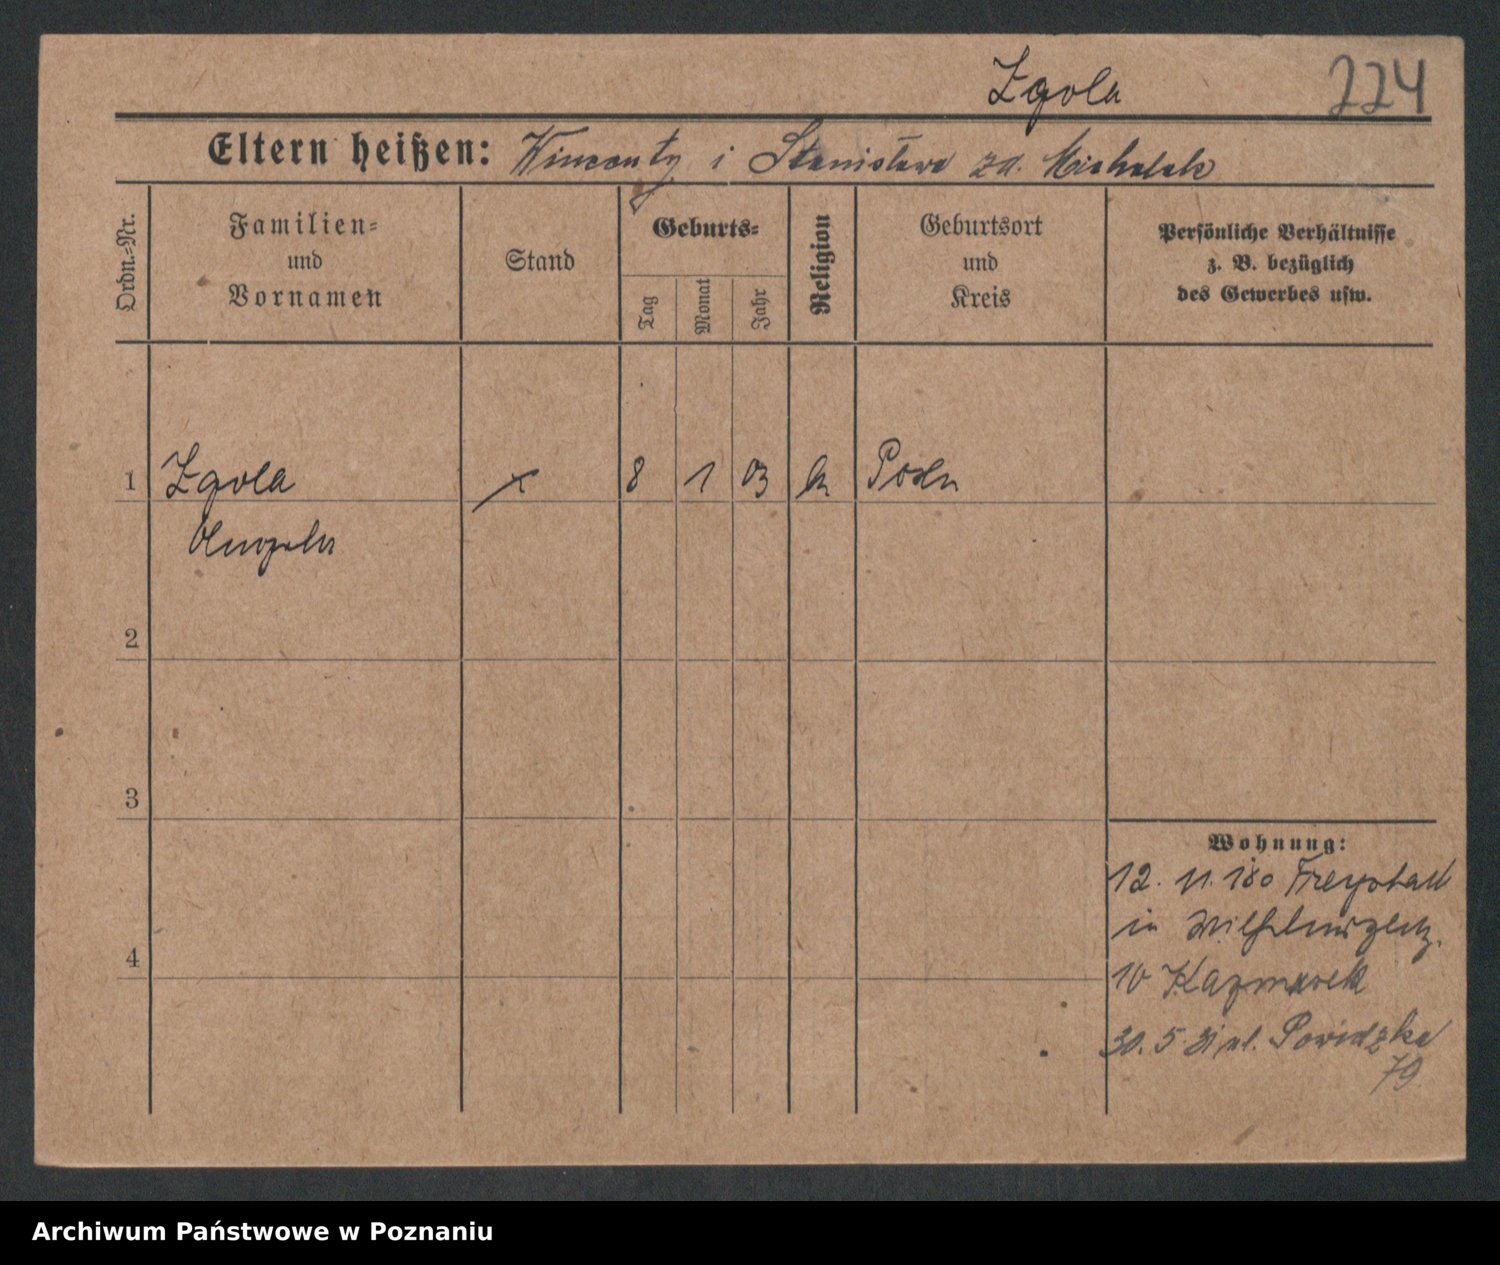 Zgola
224
Eltern heißen: Wincenty i Stanisława zd. Michalak
Ordn.-Nr.
Familien- und Vornamen
Stand
Geburts-
Tag
Monat
Jahr
Religion
Geburtsort und Kreis
Persönliche Verhältnisse z. B. bezüglich des Gewerbes usw.
1 Zgola 8 1 03 k Posen
2
3
4
Wohnung:
12. 11. Freystadt
in Wilhelmsplatz.
10 Kazmarek
30. 5. 31 ul. Powidzka
79
Archiwum Państwowe w Poznaniu